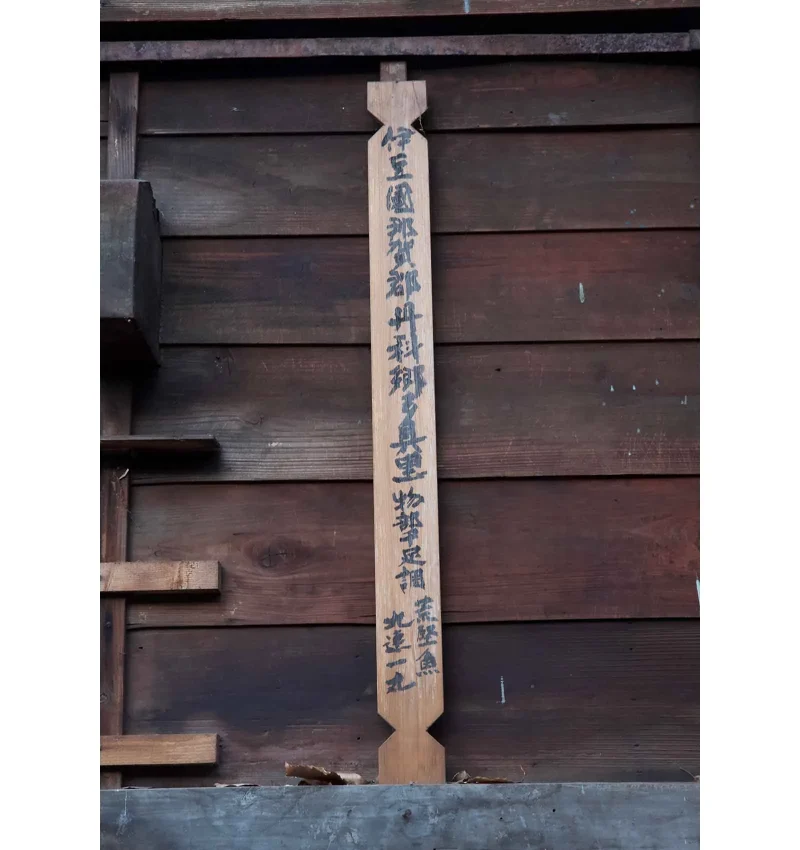 伊豆國那賀郡丹科郷多具里物部千足調
荒堅魚
九連一丸